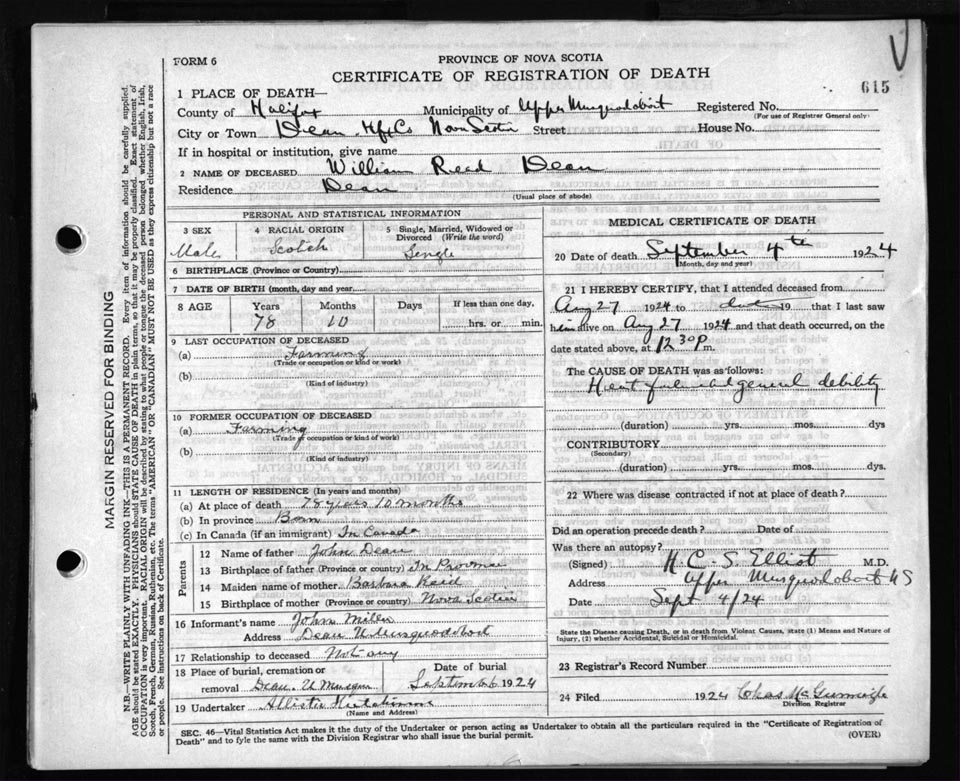 FORM 6
PROVINCE OF NOVA SCOTIA
CERTIFICATE OF REGISTRATION OF DEATH
615
1 PLACE OF DEATH—
County of Halifax Municipality of Upper Musquodoboit Registered No.
(For use of Registrar General only)
City or Town Dean Hfx Co Nova Scotia Street House No.
If in hospital or institution, give name
2 NAME OF DECEASED William Reed Dean
Residence Dean
(Usual place of abode)
PERSONAL AND STATISTICAL INFORMATION
3 SEX 4 RACIAL ORIGIN 5 Single, Married, Widowed or Divorced (Write the word)
Male Scotch Single
6 BIRTHPLACE (Province or Country)
7 DATE OF BIRTH (month, day and year)
8 AGE Years Months Days If less than one day,
78 10 hrs. or min.
9 LAST OCCUPATION OF DECEASED
(a) Farming
(Trade or occupation or kind or work)
(b)
(Kind of industry)
10 FORMER OCCUPATION OF DECEASED
(a) Farming
(Trade or occupation or kind of work)
(b)
(Kind of industry)
11 LENGTH OF RESIDENCE (In years and months)
(a) At place of death 78 years 10 months
(b) In province Born
(c) In Canada (if an immigrant) In Canada
Parents
12 Name of father John Dean
13 Birthplace of father (Province or country) In Province
14 Maiden name of mother Barbara Reid
15 Birthplace of mother (Province or country) Nova Scotia
16 Informant's name John Milen
Address Dean U Musquodoboit
17 Relationship to deceased Not any
18 Place of burial, cremation or removal Dean. U Musquo
Date of burial September 6 1924
19 Undertaker Allister Hutchinson
(Name and Address)
MEDICAL CERTIFICATE OF DEATH
20 Date of death September 4th 1924
(Month, day and year)
21 I HEREBY CERTIFY, that I attended deceased from
Aug 27 1924 to date 19 that I last saw
him alive on Aug 27 1924 and that death occurred, on the
date stated above, at 12 30 P m.
The CAUSE OF DEATH was as follows:
Heart failure and general debility
(duration) yrs. mos. dys
CONTRIBUTORY
(Secondary)
(duration) yrs. mos. dys.
22 Where was disease contracted if not at place of death?
Did an operation precede death? Date of
Was there an autopsy?
(Signed) H. C. S. Elliot M.D.
Address Upper Musquodoboit NS
Date Sept 4/24
State the Disease causing Death, or in death from Violent Causes, state (1) Means and Nature of
Injury, (2) whether Accidental, Suicidal or Homicidal.
23 Registrar's Record Number
24 Filed 1924 Chas
Division Registrar
SEC. 46—Vital Statistics Act makes it the duty of the Undertaker or person acting as Undertaker to obtain all the particulars required in the "Certificate of Registration of
Death" and to fyle the same with the Division Registrar who shall issue the burial permit.
(OVER)
MARGIN RESERVED FOR BINDING
N.B.—WRITE PLAINLY WITH UNFADING INK—THIS IS A PERMANENT RECORD. Every item of information should be carefully supplied.
AGE should be stated EXACTLY. PHYSICIANS should STATE CAUSE OF DEATH in plain terms, so that it may be properly classified. Exact statement of
OCCUPATION is very important. RACIAL ORIGIN will be described by stating to what people or tongue the deceased person belonged whether English, Irish,
Scotch, French, German, Russian, Ruthenian, etc. The terms "AMERICAN" or "CANADIAN" MUST NOT BE USED as they express citizenship but not a race
or people. See instructions on back of Certificate.